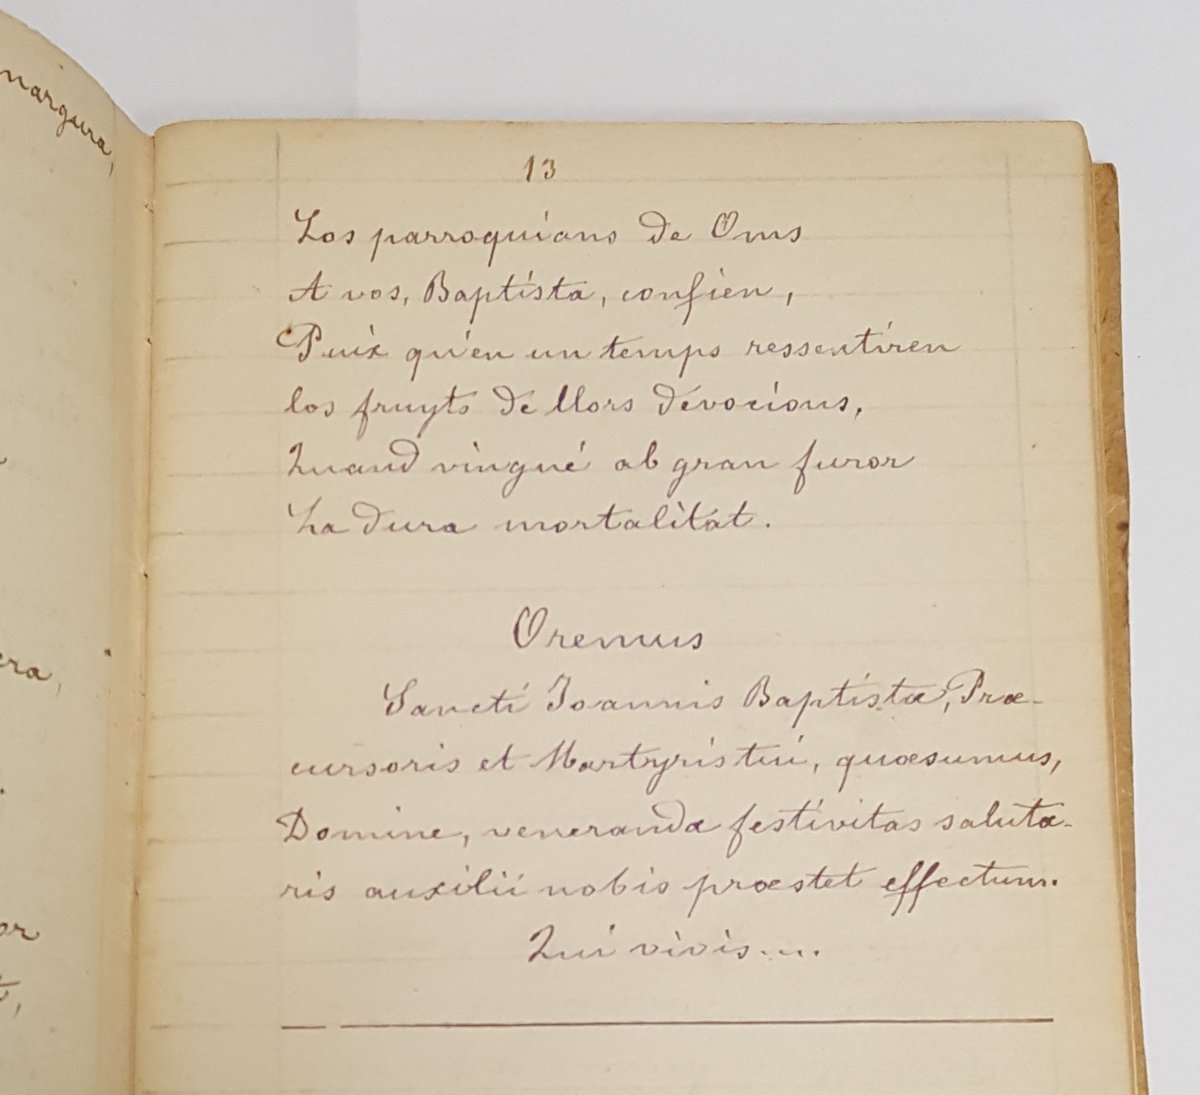 margura,
era,
or
t,
13
Los parroquians de Oms
A vos, Baptista, confien,
Puix qu'en un temps ressentiren
los fruyts de llors devocions,
Quand vingué ab gran furor
La dura mortalitat.
Oremus
Sancti Joannis Baptistæ, Præ-
cursoris et Martyris tui, quæsumus,
Domine, veneranda festivitas saluta-
ris auxilii nobis præstet effectum.
Qui vivis....